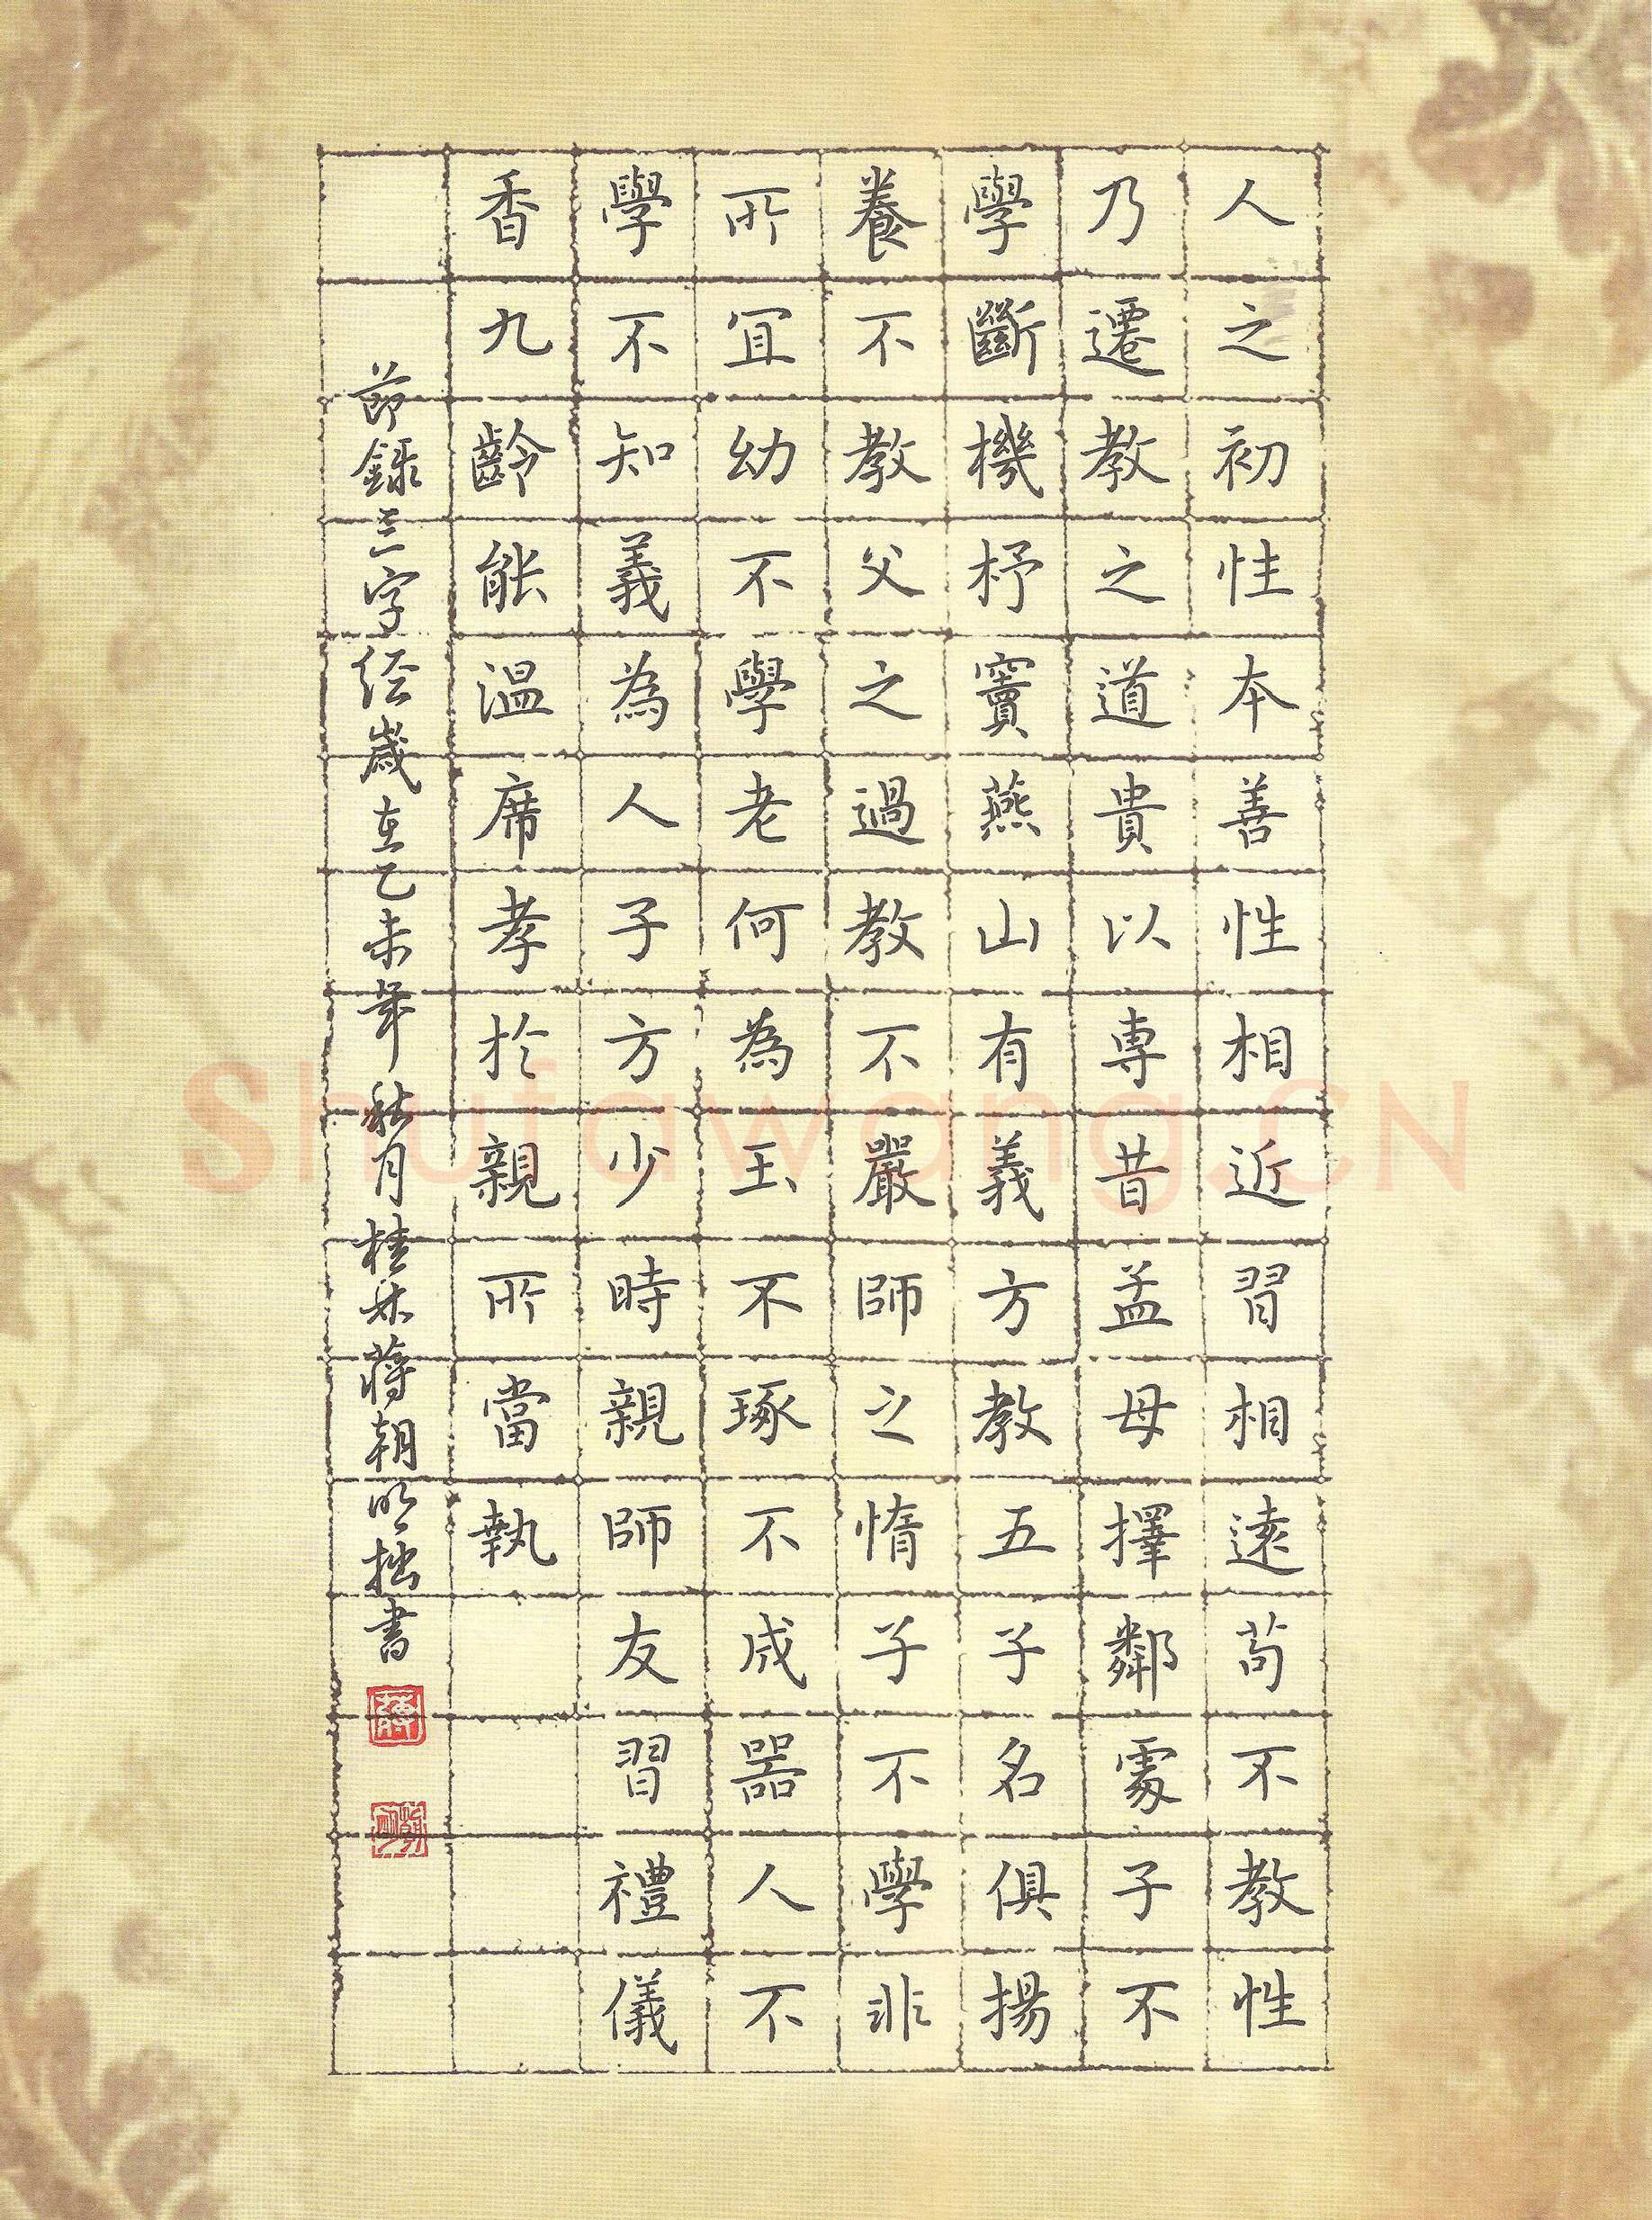 人之初性本善性相近習相遠苟不教性
乃遷教之道貴以專昔孟母擇鄰處子不
學斷機杼竇燕山有義方教五子名俱揚
養不教父之過教不嚴師之惰子不學非
所宜幼不學老何為玉不琢不成器人不
學不知義為人子方少時親師友習禮儀
香九齡能溫席孝於親所當執
節錄三字経歲在乙未年秋月桂林蔣朝明拙書
Shufawang.CN